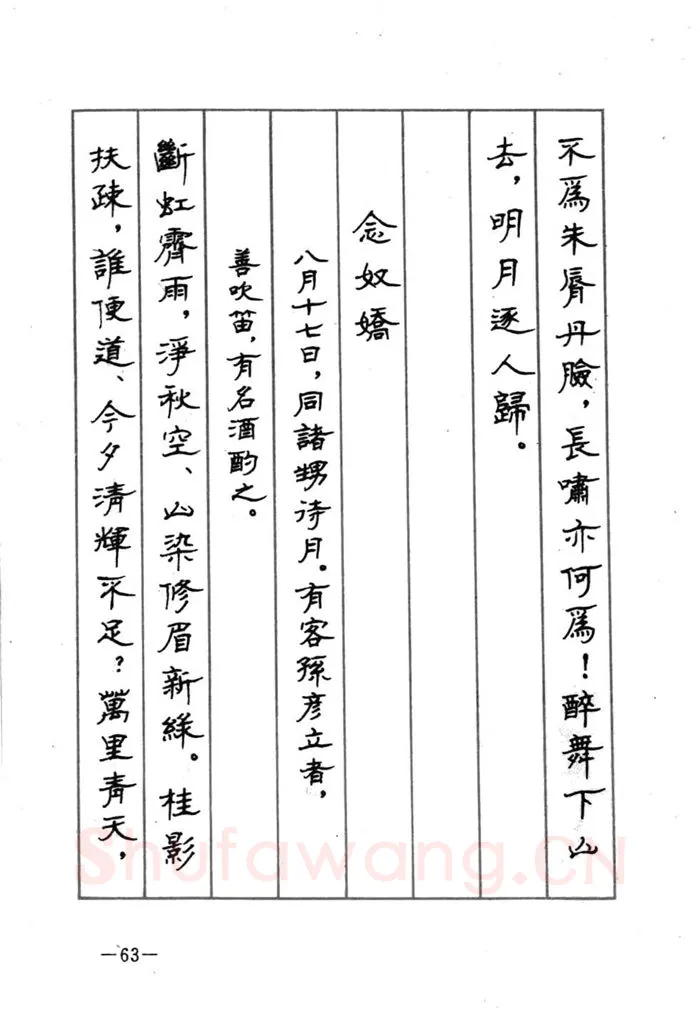 不爲朱脣丹臉，長嘯亦何爲！醉舞下山
去，明月逐人歸。
念奴嬌
八月十七日，同諸甥待月。有客孫彦立者，
善吹笛，有名酒酌之。
斷虹霽雨，淨秋空、山染修眉新緑。桂影
扶疎，誰便道、今夕清輝不足？萬里青天，
Shufawang.CN
—63—